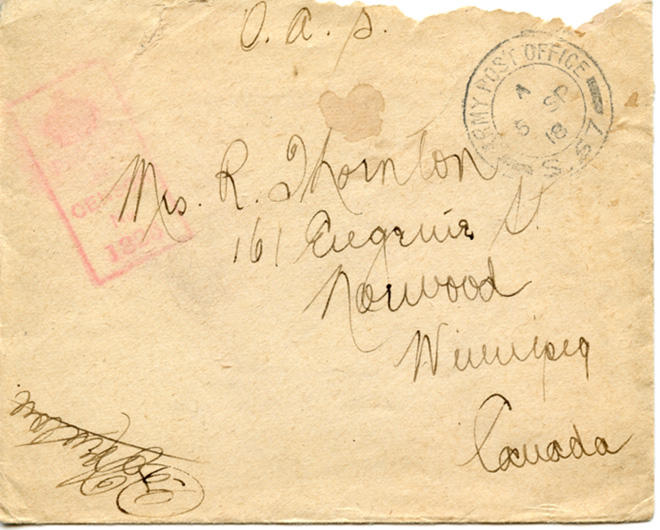 O. A. S.
ARMY POST OFFICE
A
5 SP
18
S. 57
Mrs. R. Thornton
161 Eugenie St
Norwood
Winnipeg
Canada